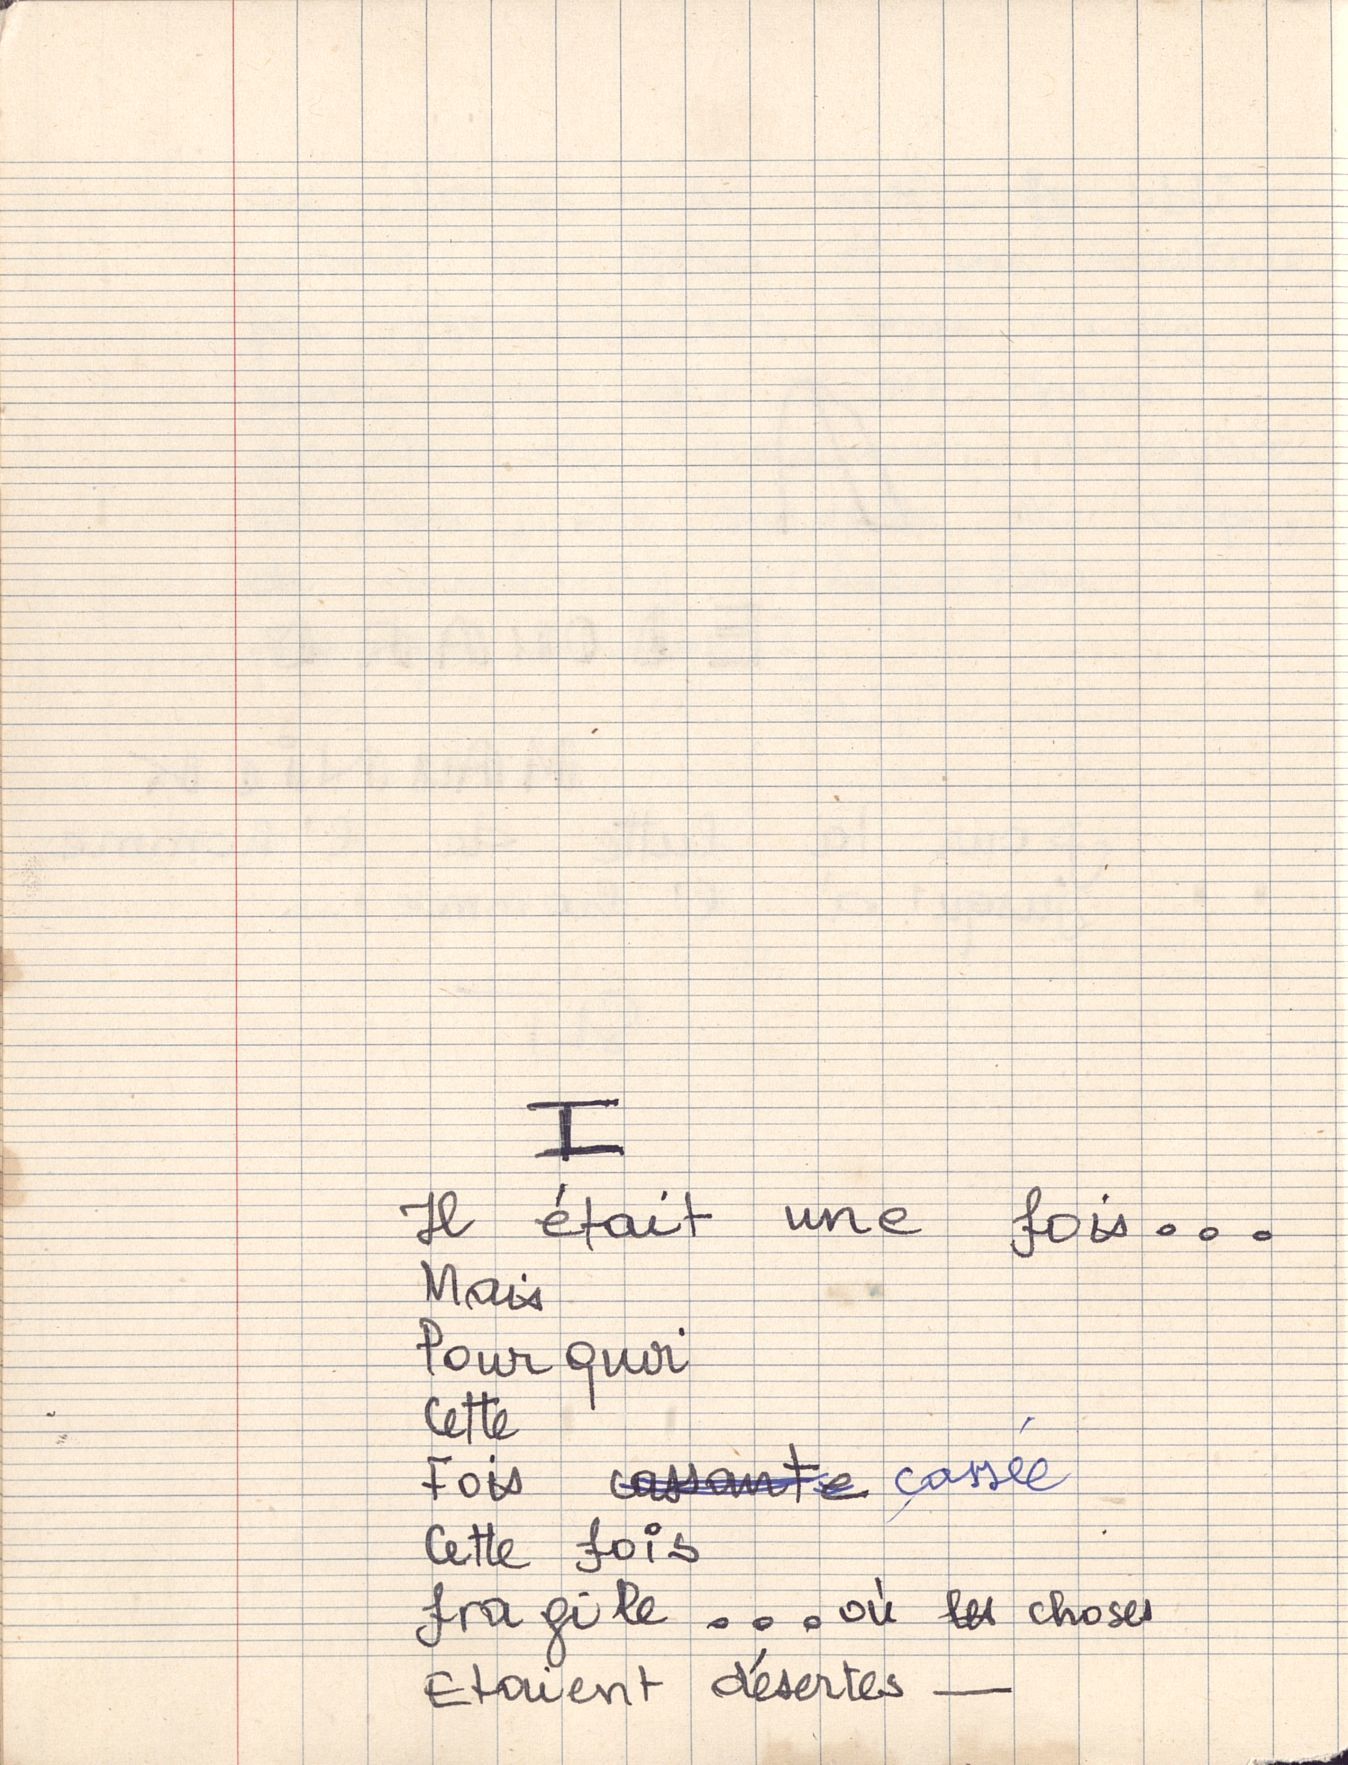 I
Il était une fois...
Mais
Pourquoi
Cette
Fois cassante cassée
Cette fois
fragile ... où les choses
Etaient désertes —